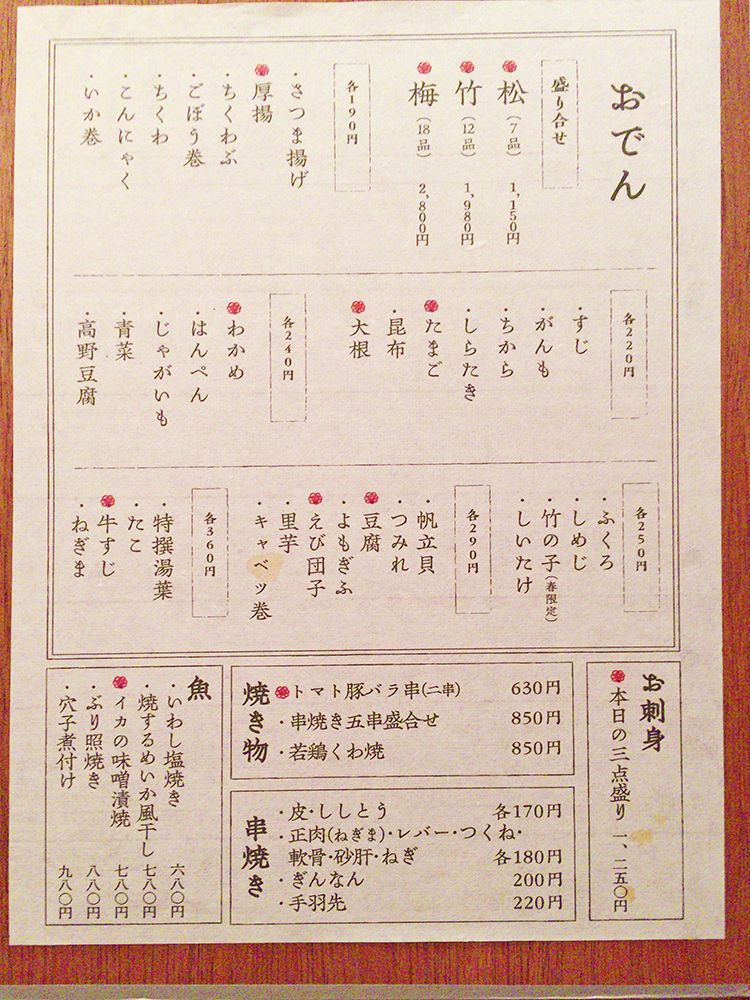 おでん
盛り合せ
松(7品) 1,150円
竹(12品) 1,980円
梅(18品) 2,800円
各190円
・さつま揚げ
厚揚
・ちくわぶ
・ごぼう巻
・ちくわ
・こんにゃく
・いか巻
各220円
・すじ
・がんも
・ちから
・しらたき
たまご
・昆布
大根
各240円
わかめ
・はんぺん
・じゃがいも
・青菜
・高野豆腐
各250円
・ふくろ
・しめじ
・竹の子(春限定)
・しいたけ
各290円
・帆立貝
・つみれ
豆腐
・よもぎふ
えび団子
・里芋
・キャベツ巻
各360円
・特撰湯葉
・たこ
牛すじ
・ねぎま
お刺身
本日の三点盛り 一、二五〇円
焼き物
トマト豚バラ串(二串) 630円
・串焼き五串盛合せ 850円
・若鶏くわ焼 850円
串焼き
・皮・ししとう 各170円
・正肉(ねぎま)・レバー・つくね・
軟骨・砂肝・ねぎ 各180円
・ぎんなん 200円
・手羽先 220円
魚
・いわし塩焼き 六八〇円
・焼するめいか風干し 七八〇円
イカの味噌漬焼 七八〇円
・ぶり照焼き 八八〇円
・穴子煮付け 九八〇円